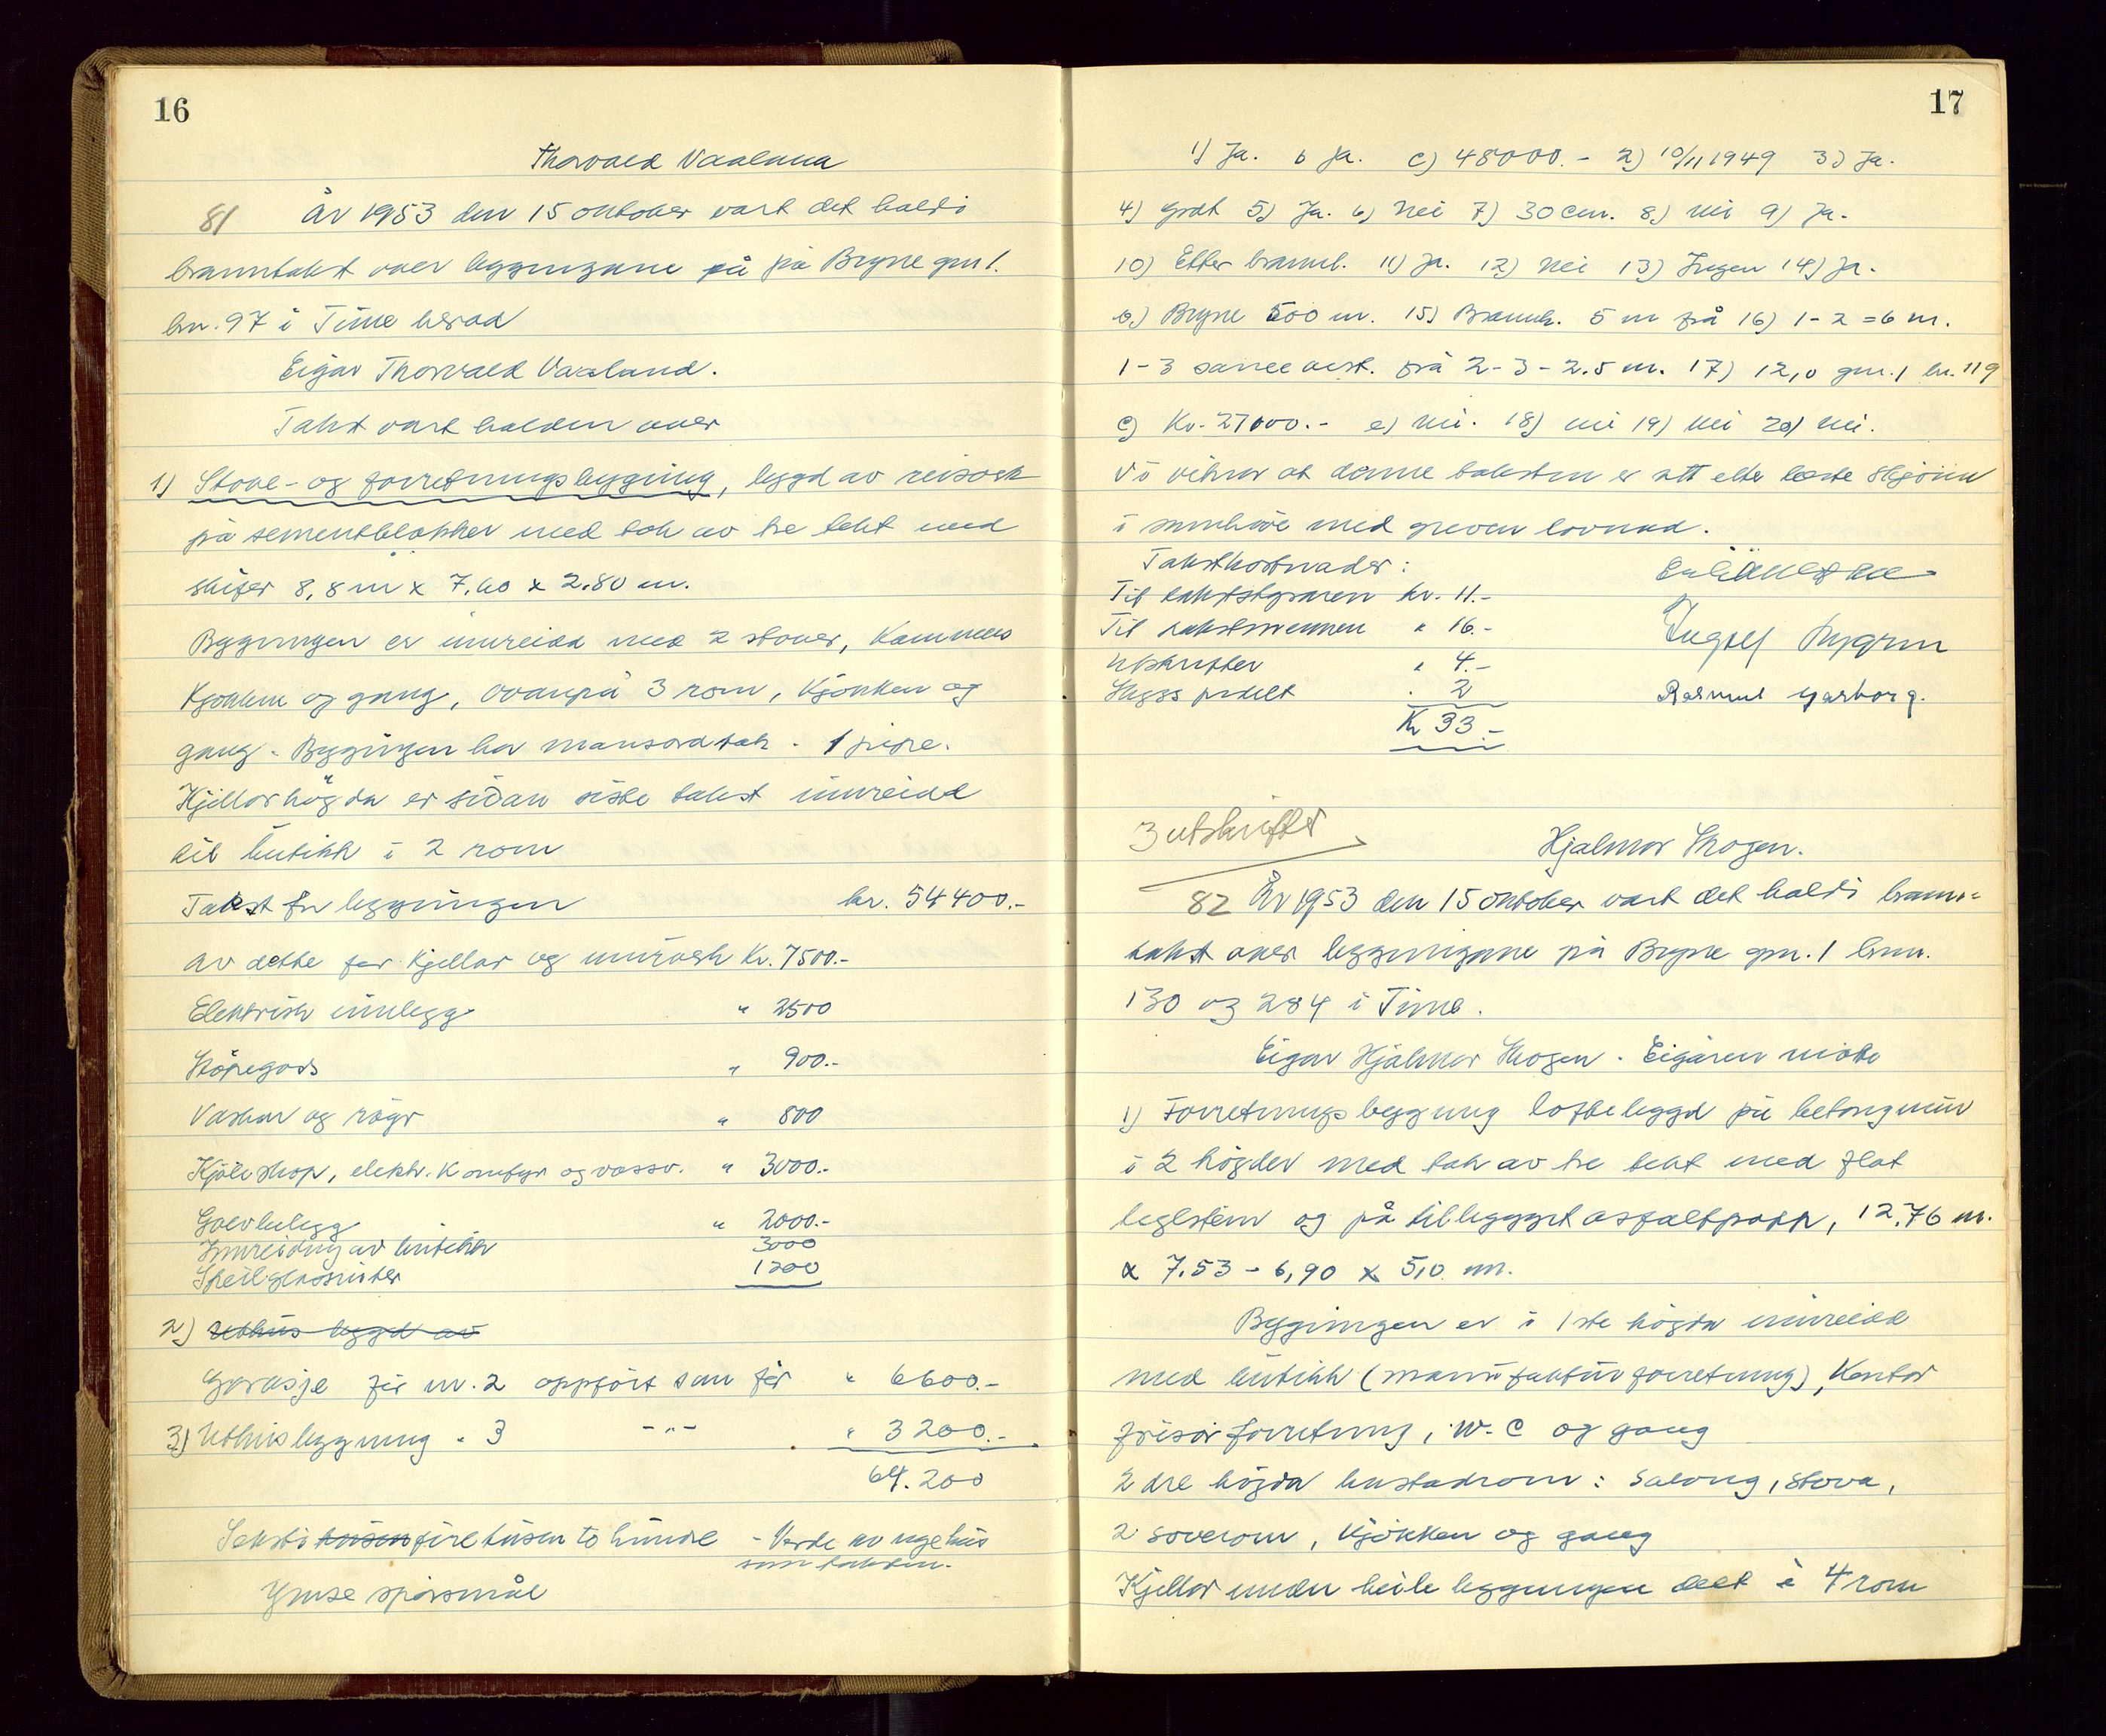 16
Thorvald Vaaland
81 År 1953 den 15 oktober vart det haldi
branntakst over bygningane på på Bryne gnr 1.
bnr. 97 i Time herad
Eigar Thorvald Vaaland.
Takst vart halden over
1) Stove- og forretningsbygning, bygd av reisverk
på sementblokker med tak av tre tekt med
skifer 8,8 m x 7,60 x 2.80 m.
Bygningen er innreidd med 2 stover, Kammers
Kjøkken og gang, ovanpå 3 rom, Kjøkken og
gang. Bygningen har mansardtak. 1 pipe.
Kjellarhøgda er sidan siste takst innreidd
til butikk i 2 rom
Takst for bygningen kr. 54400.-
Av dette for Kjellar og murverk Kr. 7500.-
Elektrisk innlegg " 2500
Støpegods " 900.-
Vaskar og røyr " 800
Kjøleskap, elektr. Komfyr og vassv. " 3000.-
Golvbelegg " 2000.-
Innreiding av butikk 3000
Speilglassruter 1200
2) Uthus bygd av
Garasje før nr. 2 oppført som før " 6600.-
3) Uthusbygning " 3 -"- " 3200.-
64.200
Seksti tusen fire tusen to hundre - Verde av nye hus
som taksten.
Ymse spørsmål
17
1) Ja. b Ja. c) 48000.- 2) 10/11 1949 3) Ja.
4) Godt 5) Ja. 6) Nei 7) 30 cm. 8) Nei 9) Ja.
10) Etter brannl. 11) Ja. 12) Nei 13) Ingen 14) Ja.
b) Bryne 500 m. 15) Brannh. 5 m frå 16) 1-2 = 6 m.
1-3 sameleist. frå 2-3 - 2.5 m. 17) 12,0 gnr. 1 bn. 119
c) Kr. 27000.- e) Nei. 18) Nei 19) Nei 20) Nei.
Vi vitnar at denne taksten er sett etter beste skjønn
i samhøve med greven lovnad.
Takstkostnader:
Til takststyraren kr. 11.-
Til takstmennen " 16.-
Utskrifter " 4.-
Skyss fordelt " 2
Kr 33.-
Rasmus Garborg.
3 utskrifter
Hjalmar Skogen.
82 År 1953 den 15 oktober vart det haldi brann-
takst over bygningane på Bryne gnr. 1 bnr.
130 og 284 i Time.
Eigar Hjalmar Skogen. Eigaren møtte
1) Forretningsbygning loftebygd på betongmur
i 2 høgder med tak av tre tekt med flat
teglstein og på tilbygget asfaltpapp, 12,76 m.
x 7,53 - 6,90 x 5,0 m.
Bygningen er i 1ste høgda innreidd
med butikk (manufakturforretning), Kontor
frisørforretning, W.C og gang
2dre høgda bustadrom: Salong, stova,
2 soverom, Kjøkken og gang
Kjellar under heile bygningen delt i 4 rom